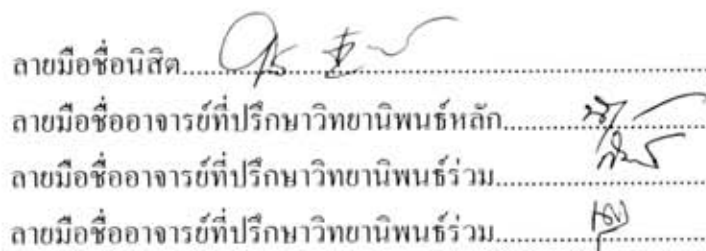 ลายมือชื่อนิสิต
ลายมือชื่ออาจารย์ที่ปรึกษาวิทยานิพนธ์หลัก
ลายมือชื่ออาจารย์ที่ปรึกษาวิทยานิพนธ์ร่วม
ลายมือชื่ออาจารย์ที่ปรึกษาวิทยานิพนธ์ร่วม